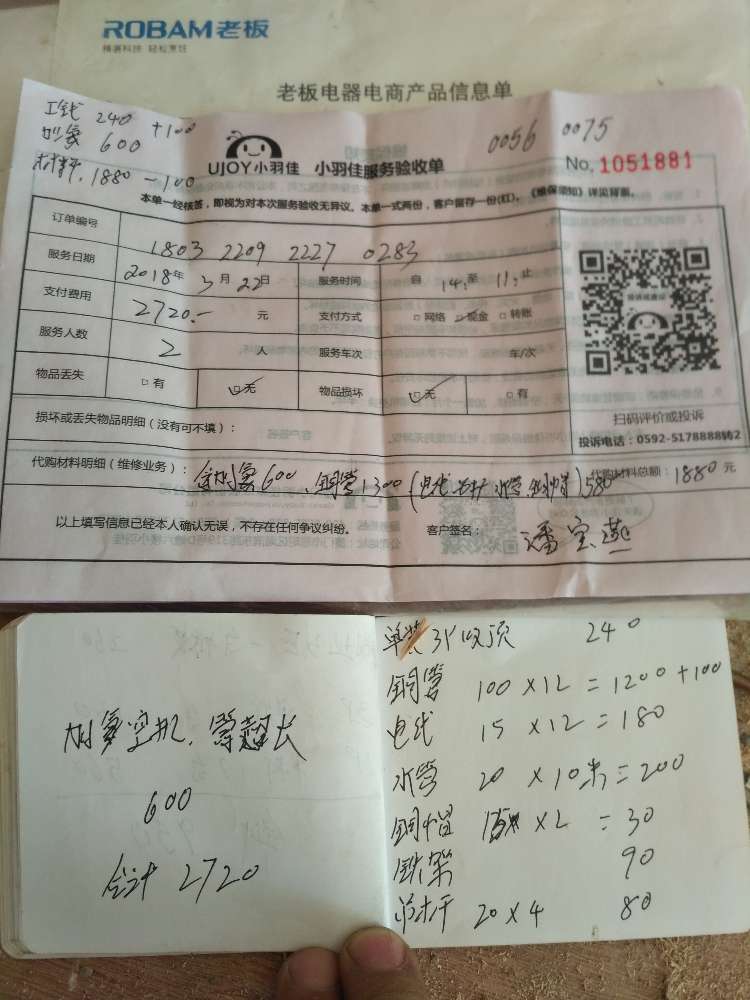 ROBAM老板
精湛科技 轻松烹饪
老板电器电商产品信息单
工钱 240 +100
加氟 600
材料 1880 - 100
0056 0075
UJOY小羽佳 小羽佳服务验收单
No. 1051881
本单一经核签，即视为对本次服务验收无异议。本单一式两份，客户留存一份(红)。《维保须知》详见背面。
订单编号 1803 2209 2227 0283
服务日期 2018年3月22日 服务时间 自 14: 至 11: 止
支付费用 2720.- 元 支付方式 □网络 ☑现金 □转账
服务人数 2 人 服务车次 车/次
物品丢失 □有 ☑无 物品损坏 ☑无 □有
损坏或丢失物品明细（没有可不填）：
扫码评价或投诉
投诉电话：0592-5178888转2
代购材料明细（维修业务）： 加氟600、铜管1300（电线 水管 铜帽）580
代购材料总额： 1880 元
以上填写信息已经本人确认无误，不存在任何争议纠纷。 客户签名： 潘宝莲
600
合计 2720
单装3P吸顶 240
铜管 100 × 12 = 1200 + 100
电线 15 × 12 = 180
水管 20 × 10米 = 200
铜帽 15 × 2 = 30
铁架 90
吊杆 20 × 4 80